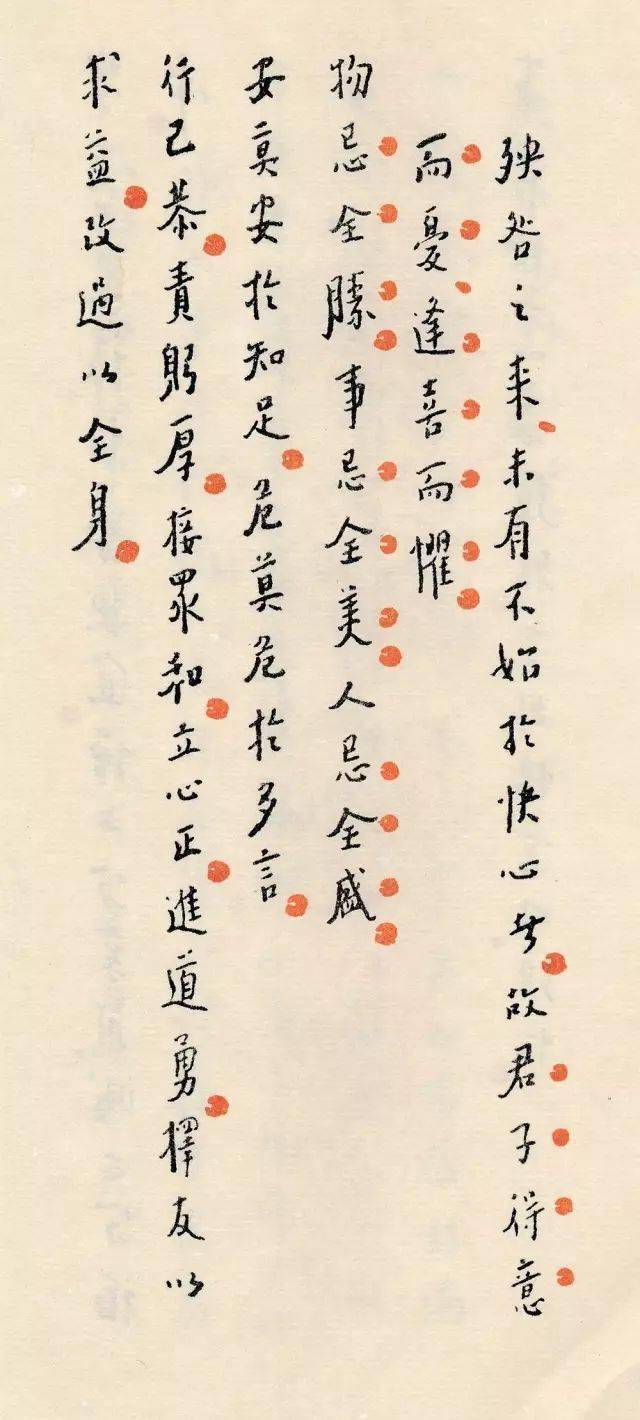 殃咎之来未有不始於快心者故君子得意
而憂逢喜而懼
物忌全勝事忌全美人忌全盛
安莫安於知足危莫危於多言
行己恭責躬厚接眾和立心正進道勇擇友以
求益改過以全身